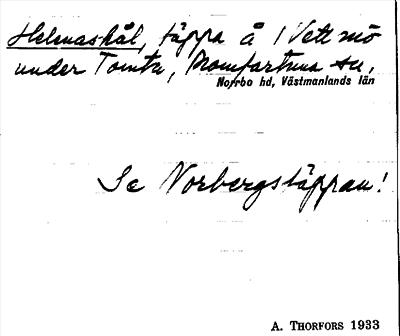 Helmaskäl, täppa å Vett mö
under Tomta, Romfartuna sn,
Norrbo hd, Västmanlands län
Se Norbergstäppan!
A. THORFORS 1933